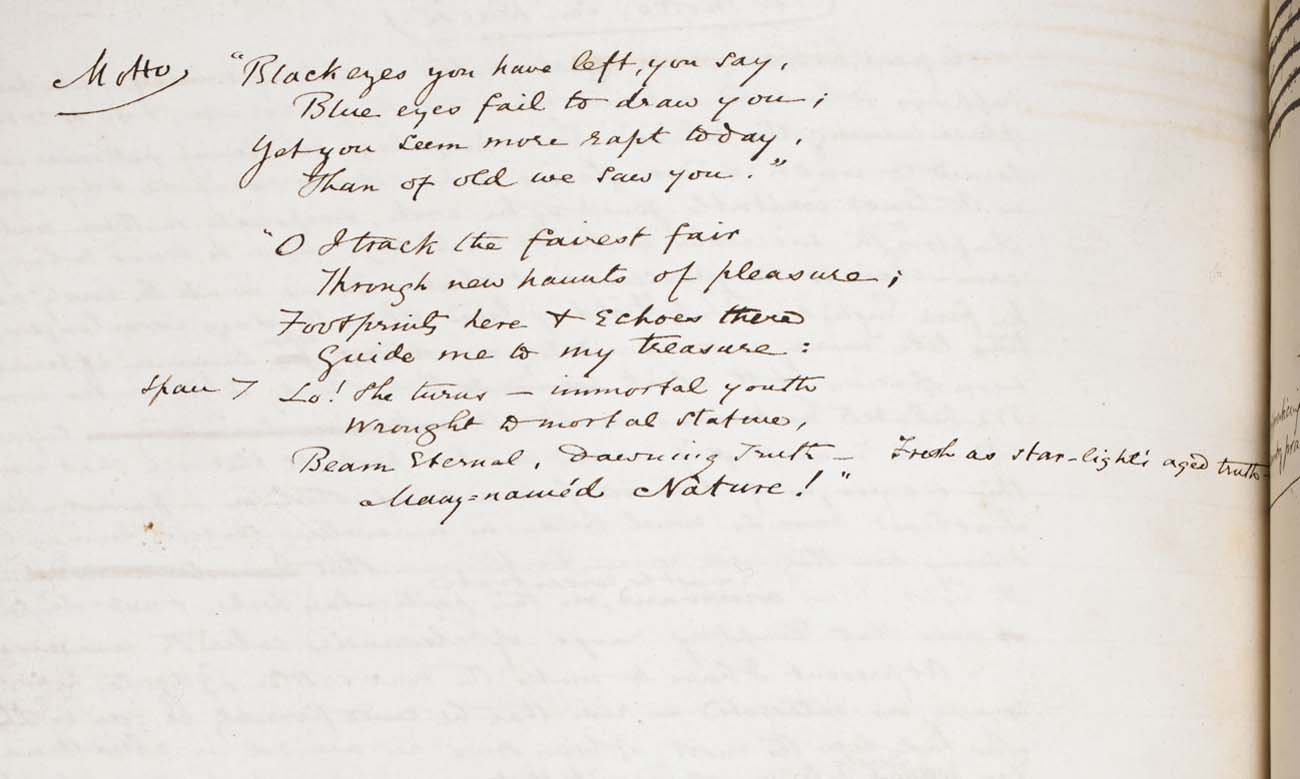 Motto "Black eyes you have left, you say,
Blue eyes fail to draw you;
Yet you seem more rapt today,
Than of old we saw you."
"O I track the fairest fair
Through new haunts of pleasure;
Footprints here & Echoes there
Guide me to my treasure:
Lo! She turns — immortal youth
Wrought to mortal stature,
Beam Eternal, Dawning Truth — Fresh as star-light's aged truth —
Many-naméd Nature!"